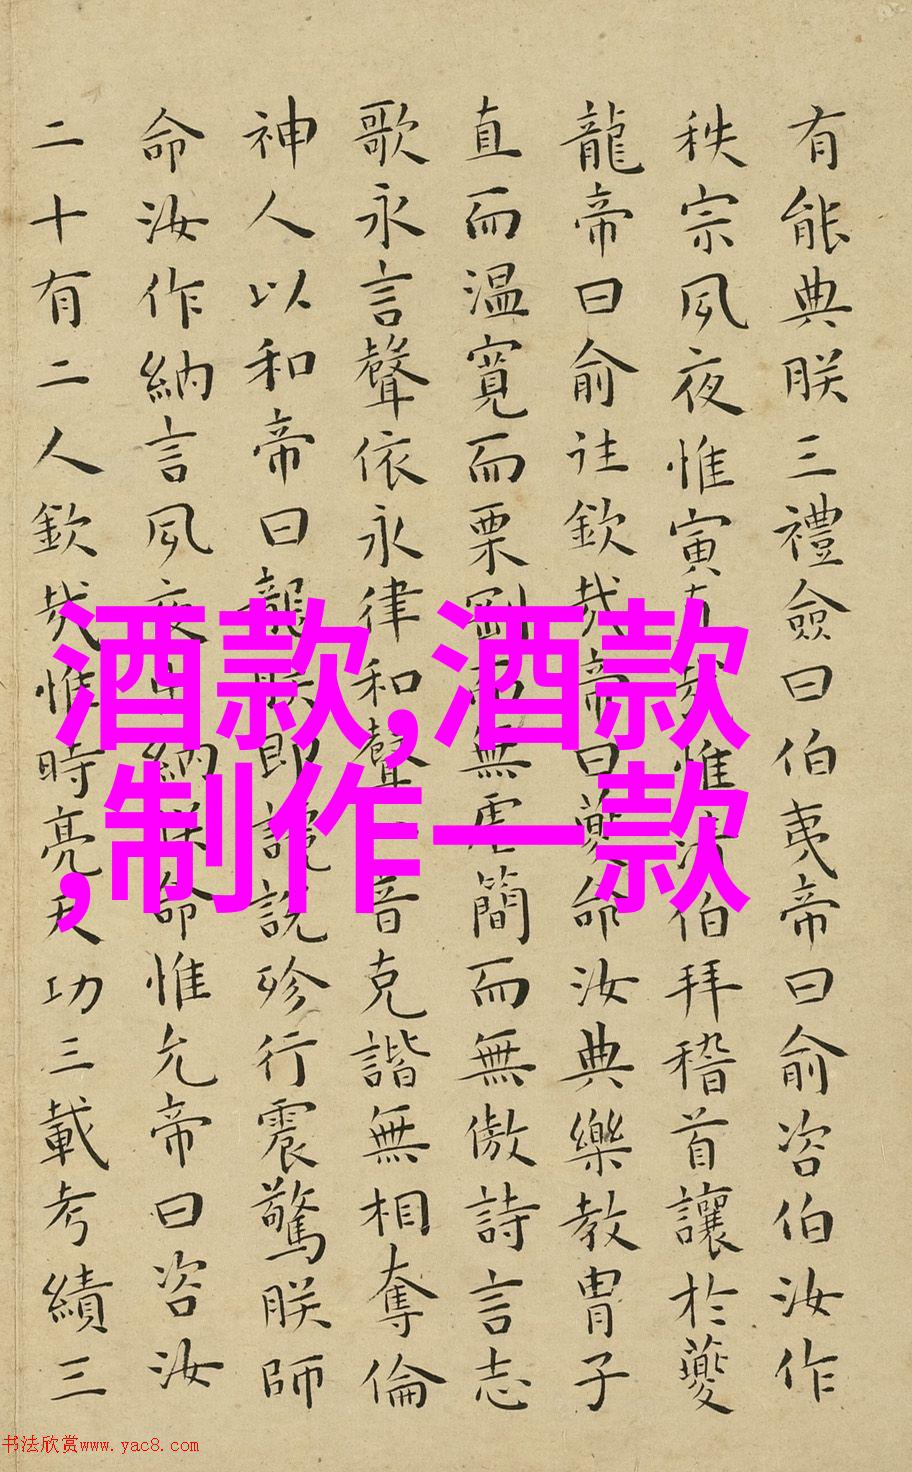 有能典朕三禮僉曰伯夷帝曰俞咨伯汝作
秩宗夙夜惟寅直哉惟清伯拜稽首讓於夔
龍帝曰俞往欽哉帝曰夔命汝典樂教冑子
直而温寬而栗剛而無虐簡而無傲詩言志
歌永言聲依永律和聲音克諧無相奪倫
神人以和帝曰龍朕即讒說殄行震驚朕師
命汝作納言夙夜出納朕命惟允帝曰咨汝
二十有二人欽哉惟時亮天功三載考績三
酒款,酒款
,制作一款
书法欣赏www.yac8.com